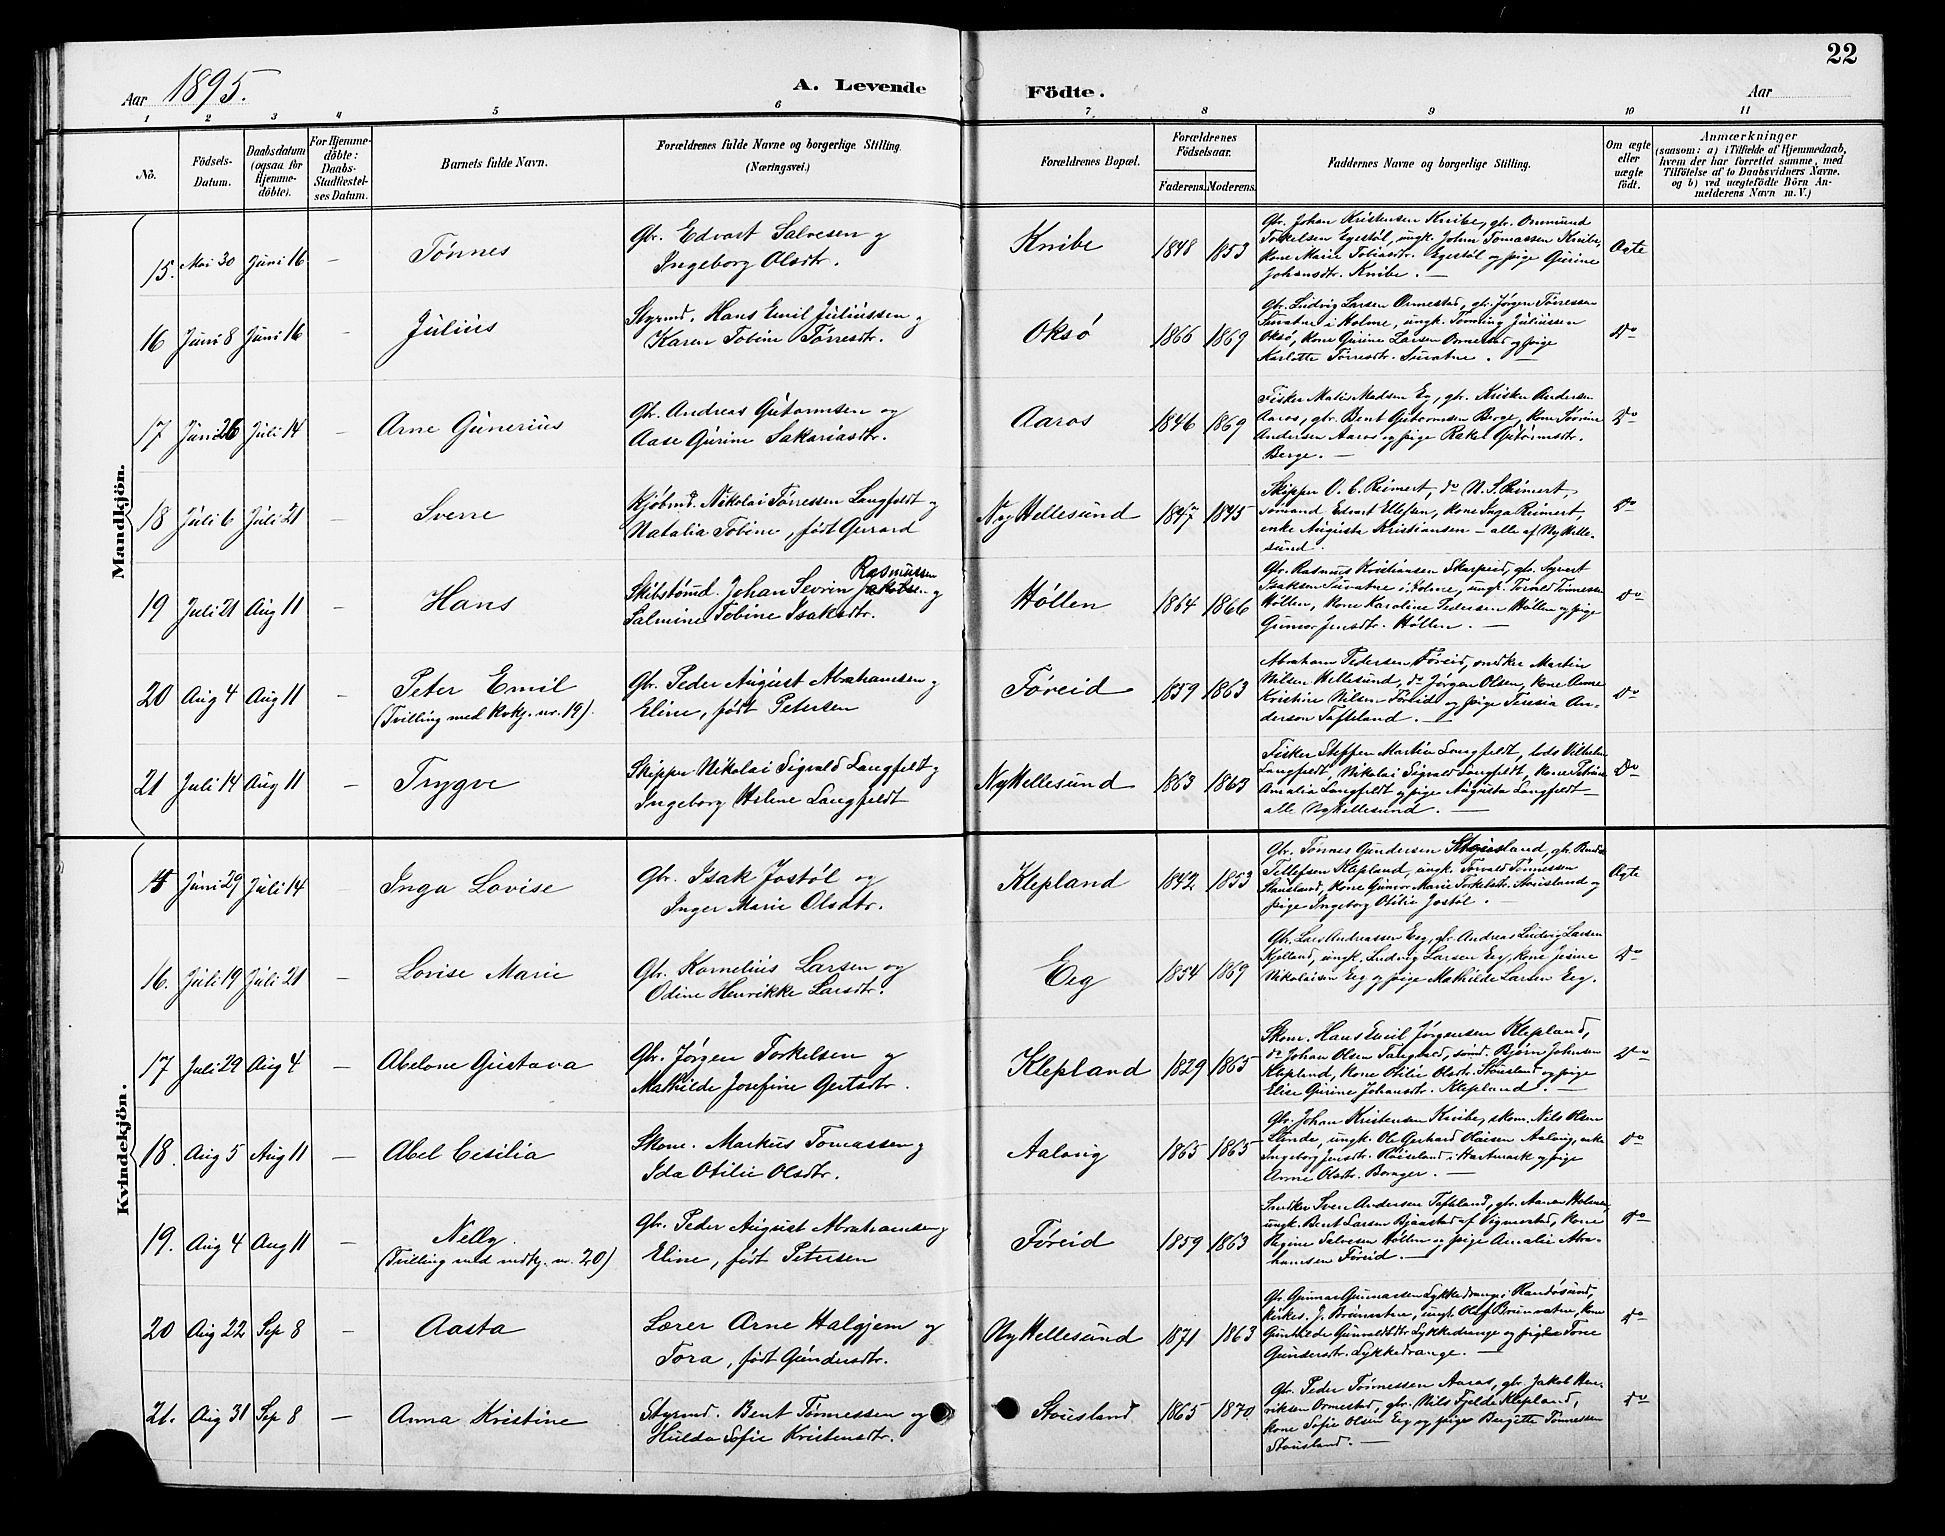 22
Aar 1895.
A. Levende Födte.
Aar
1 2 3 4 5 6 7 8 9 10 11
No.
Födsels-Datum.
Daabsdatum (ogsaa for Hjemme-döbte).
For Hjemme-döbte: Daabs-Stadfæstel-ses Datum.
Barnets fulde Navn.
Forældrenes fulde Navne og borgerlige Stilling. (Næringsvei.)
Forældrenes Bopæl.
Forældrenes Födselsaar.
Faderens. Moderens.
Faddernes Navne og borgerlige Stilling.
Om ægte eller uægte födt.
Anmærkninger
(saasom: a) i Tilfælde af Hjemmedaab, hvem der har forrettet samme, med Tilföielse af to Daabsvidners Navne. og b) ved uægtefödte Börn An-melderens Navn m. V.)
Mandkjön.
15. Mai 30 Juni 16 — Tønnes
Gbr. Edvart Salvesen og
Ingeborg Olsdtr.
Knibe 1848 1853
Gbr. Johan Kristensen Knibe, gbr. Ommund
Torkelsen Egestøl, ungk. Johan Tomassen Knibe,
kone Marie Tobiasdtr. Egestøl og pige Gurine
Johansdtr. Knibe. —
Ægte
16 Juni 8 Juni 16 — Julius
Styrmd. Hans Emil Juliussen og
Karen Tobine Tørresdtr.
Oksø 1866 1869
Gbr. Ludvig Larsen Ormestad, gbr. Jørgen Tørressen
i Holme, ungk. Tønning Juliussen
Oksø, kone Gurine Larsen Ormestad og pige
Karlotte Tørresdtr. —
Do
17 Juni 26 Juli 14 — Arne Gunerius
Gbr. Andreas Gutormsen og
Aase Gurine Sakariasdtr.
Aaros 1846 1869
Fisker Matis Madsen Eg, gbr. Kristen Andersen
Aaros, gbr. Bent Gutormsen Berge, kone
Andersen Aaros og pige Rakel Gutormsdtr.
Berge. —
Do
18 Juli 6 Juli 21 — Sverre
Kjøbmd. Nikolai Tørressen Langfeldt og
Natalia Tobine, født Gerrard
Ny Hellesund 1847 1845
Skipper O. C. Reimert, do N. S. Reimert,
Sømand Edvart Ellefsen, kone Inga Reimert,
enke Augusta Kristiansen – alle af Ny Helle-
sund.
Do
19 Juli 21 Aug 11 — Hans
Rasmussen
Skibstømd. Johan Sevrin Jakobsen og
Salmine Tobine Isaksdtr.
Høllen 1864 1866
Gbr. Rasmus Kristiansen Skarpeid, gbr. Syvert
Isaksen i Holme, ungk. Tønnessen
Høllen, kone Karoline Pedersen Høllen og pige
Gunvor Jensdtr. Høllen. —
Do
20 Aug 4 Aug 11 — Peter Emil
(Tvilling med kvkj. nr. 19).
Gbr. Peder August Abrahamsen og
Eline, født Petersen
Føreid 1859 1863
Abraham Pedersen Føreid, snedker Martin
Nilsen Hellesund, do Jørgen Olsen, kone Anne
Kristine Nilsen Føreid og pige Teresia An-
dersen Tofteland. —
Do
21 Juli 14 Aug 11 — Trygve
Skipper Nikolai Sigvald Langfeldt og
Ingeborg Helene Langfeldt
Ny Hellesund 1863 1863
Fisker Steffen Martin Langfeldt, lods Vilhelm
Langfeldt, Nikolai Sigvald Langfeldt, kone Petrine
Amalia Langfeldt og pige Augusta Langfeldt –
alle Ny Hellesund. —
Do
Kvindekjön.
15 Juni 29 Juli 14 — Inga Lovise
Gbr. Isak Jostøl og
Inger Marie Olsdtr.
Klepland 1842 1853
Gbr. Tønnes Gundersen Stousland, gbr.
Tellefsen Klepland, ungk. Torvald Tønnessen
Stousland, kone Gunvor Marie Torkelsdtr. Stousland og
pige Ingeborg Otilie Jostøl. —
Ægte
16. Juli 19 Juli 21 — Lovise Marie
Gbr. Kornelius Larsen og
Odine Henrikke Larsdtr.
Eeg 1854 1869
Gbr. Lars Andreassen Eeg, gbr. Andreas Ludvig Larsen
Kjelland, ungk. Ludvig Larsen Eeg, kone Jesine
Nikolaisen Eeg og pige Mathilde Larsen Eeg.
Do
17 Juli 29 Aug 4 — Abelone Gustava
Gbr. Jørgen Torkelsen og
Mathilde Josefine Gertsdtr.
Klepland 1829 1865
Skom. Hans Emil Jørgensen Klepland,
do Johan Olsen Tangvald, sømd. Bjørn Johnsen
Klepland, kone Otilie Olsdtr. Stousland og pige
Elise Gurine Johansdtr. Klepland. —
Do
18. Aug 5 Aug 11 — Abel Cecilia
Skom. Markus Tomassen og
Ida Otilie Olsdtr.
Aalvig 1865 1865
Gbr. Johan Kristensen Knibe, skom. Nils Olsen
ungk. Ole Gerhard Olaisen Aalvig, enke
Ingeborg Jensdtr. i Hartmark og pige
Anne Olsdtr. —
Do
19. Aug 4 Aug 11 — Nelly.
(Tvilling med mdkj. nr. 20)
Gbr. Peder August Abrahamsen og
Eline, født Petersen
Føreid 1859 1863
Snedker Sven Andersen Tofteland, gbr.
ungk. Bent Larsen Bjaastad af Vigmostad, kone
Regine Salvesen Høllen og pige Amalie Abra-
hamsen Føreid. —
Do
20 Aug 22 Sep 8 — Aasta
Lærer Arne Halgjem og
Tora, født Gundersdtr.
Ny Hellesund 1871 1863
Gbr. Gunnar Gunnarsen Lykkedrange i Randøsund,
kirkes. J. Brunvatne, ungk. Olaf Brunvatne, kone
Gunhilde Gunvaldsdtr. Lykkedrange og pige Tone
Gundersdtr. Lykkedrange. —
Do
21. Aug 31 Sep 8 — Anna Kristine
Styrmd. Bent Tønnessen og
Hulda Sofie Kristensdtr.
Stousland 1865 1870
Gbr. Peder Tønnessen Aaros, gbr. Jakob Hen-
riksen Ormestad, gbr. Nils Fjelde Klepland,
kone Sofie Olsen Eeg og pige Bergitte Tønnessen
Stousland. —
Do